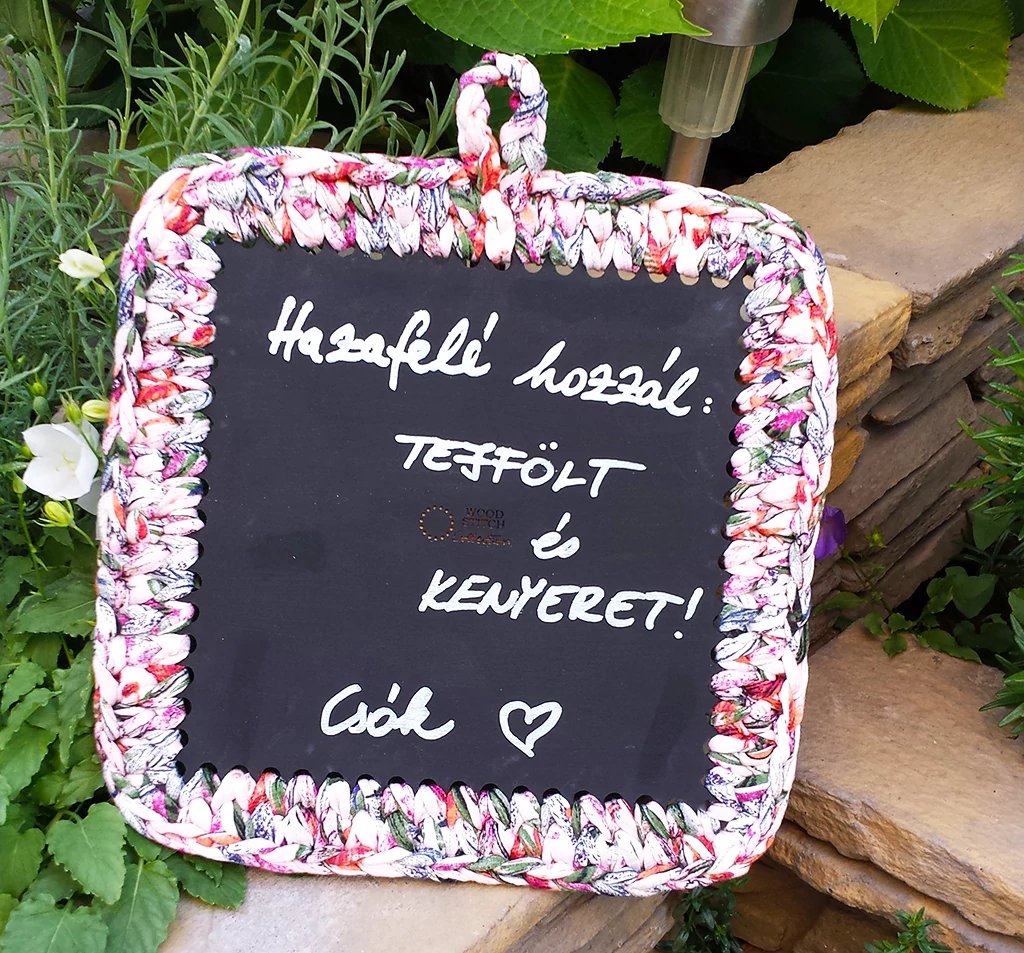 Hazafelé hozzál:
TEJFÖLT
WOOD
STITCH
collection
és
KENYERET!
Csók ♡